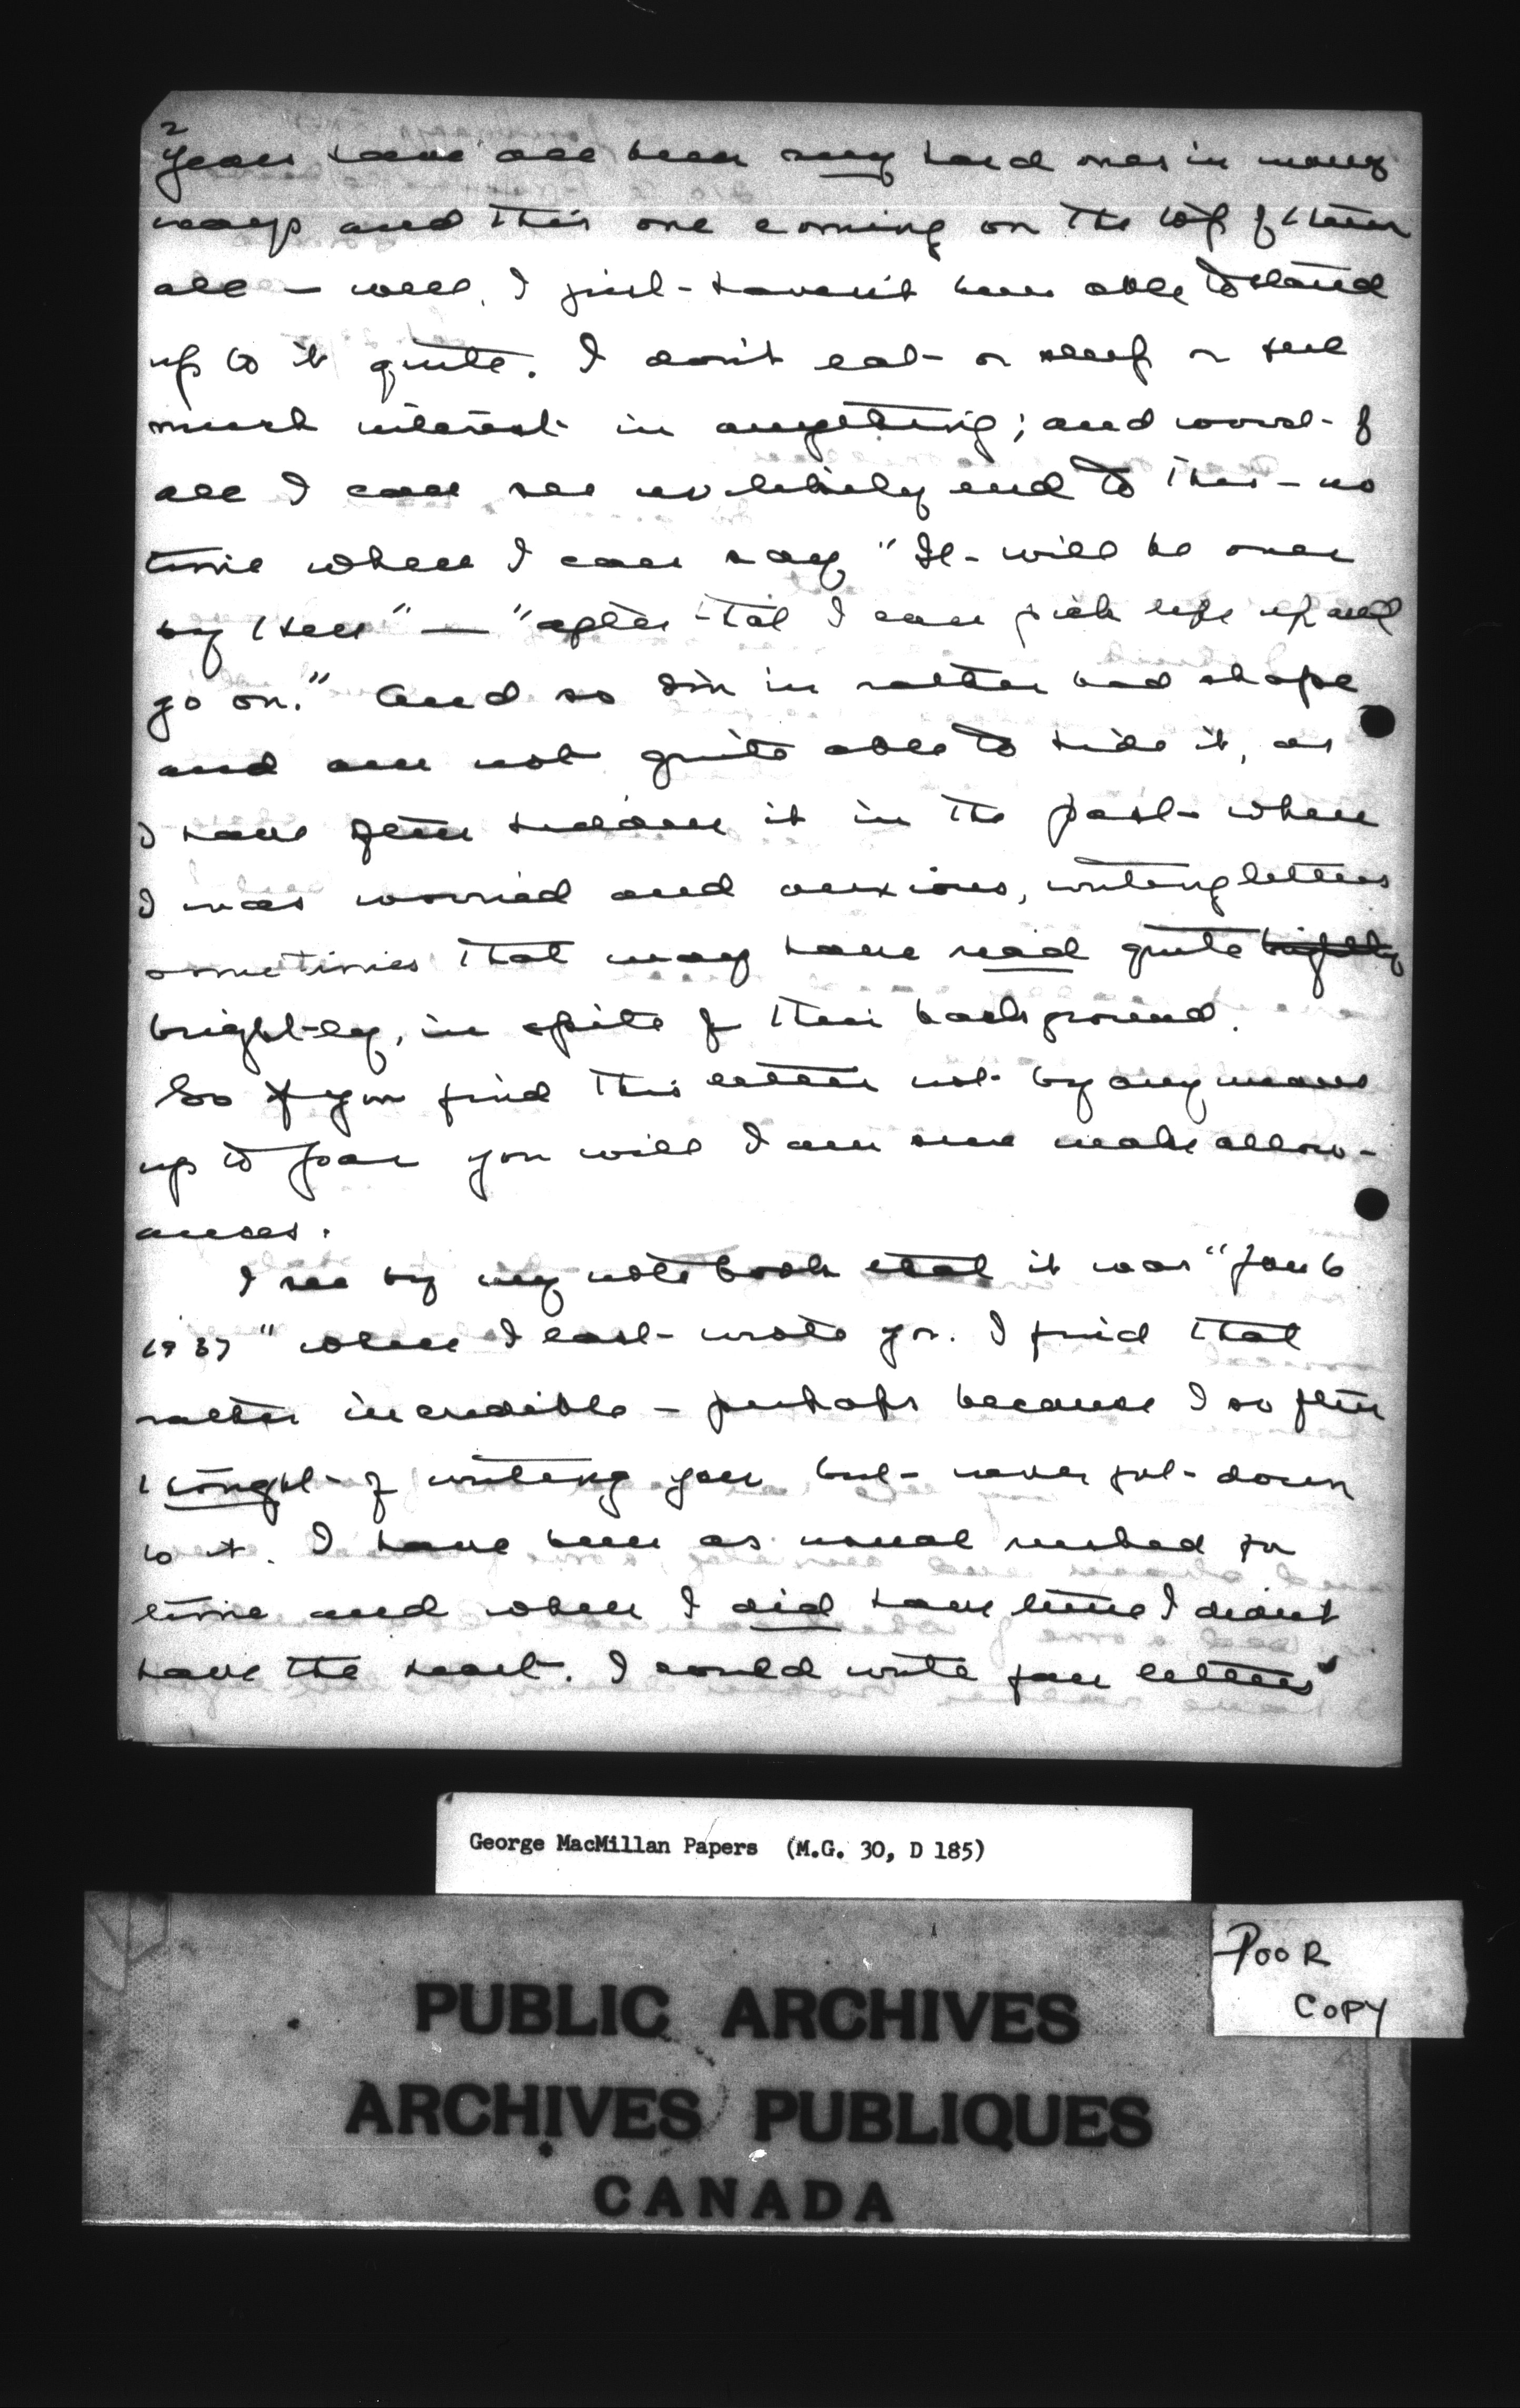 2
years have all been very hard ones in many
ways and this one coming on the top of them
all — well, I just haven't been able to stand
up to it quite. I don't eat or sleep or feel
much interest in anything; and worst of
all I can see no likely end to this — no
time when I can say "It will be over
by then" — "after that I can pick life up and
go on." And so I'm in rather bad shape
and am not quite able to hide it, as
I have often hidden it in the past when
I was worried and anxious, writing letters
sometimes that may have read quite brightly
brightly, in spite of their background.
So if you find this letter not by any means
up to par you will I am sure make allow-
ances.
I see by my notebook that it was "Jan 6
1937" when I last wrote you. I find that
rather incredible — perhaps because I so often
thought of writing you but never got down
to it. I have been as usual rushed for
time and when I did have time I didn't
have the heart. I could write fan letters
George MacMillan Papers (M.G. 30, D 185)
POOR
COPY
PUBLIC ARCHIVES
ARCHIVES PUBLIQUES
CANADA